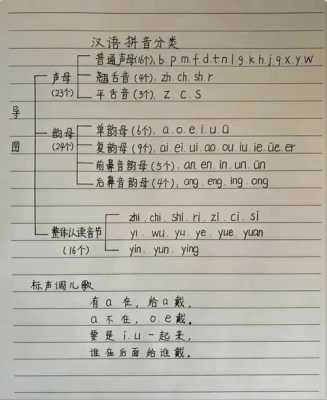 汉语拼音分类
普通声母(16个) b.p.m.f.d.t.n.l.g.k.h.j.q.x.y.w
声母 翘舌音(4个).zh.ch.sh.r
(23个) 平舌音(3个).z.c.s
导图
单韵母(6个).a.o.e.i.u.ü
韵母 复韵母(9个).ai.ei.ui.ao.ou iu ie.üe.er
(24个) 前鼻音韵母(5个).an.en.in.un.ün
后鼻音韵母(4个).ang.eng.ing.ong
zhi.chi.shi.ri.zi.ci.si
整体认读音节 yi.wu.yu.ye.yue.yuan
(16个) yin.yun.ying
标声调儿歌
有a在,给a戴,
a不在,o.e戴,
要是i.u一起来,
谁在后面给谁戴.